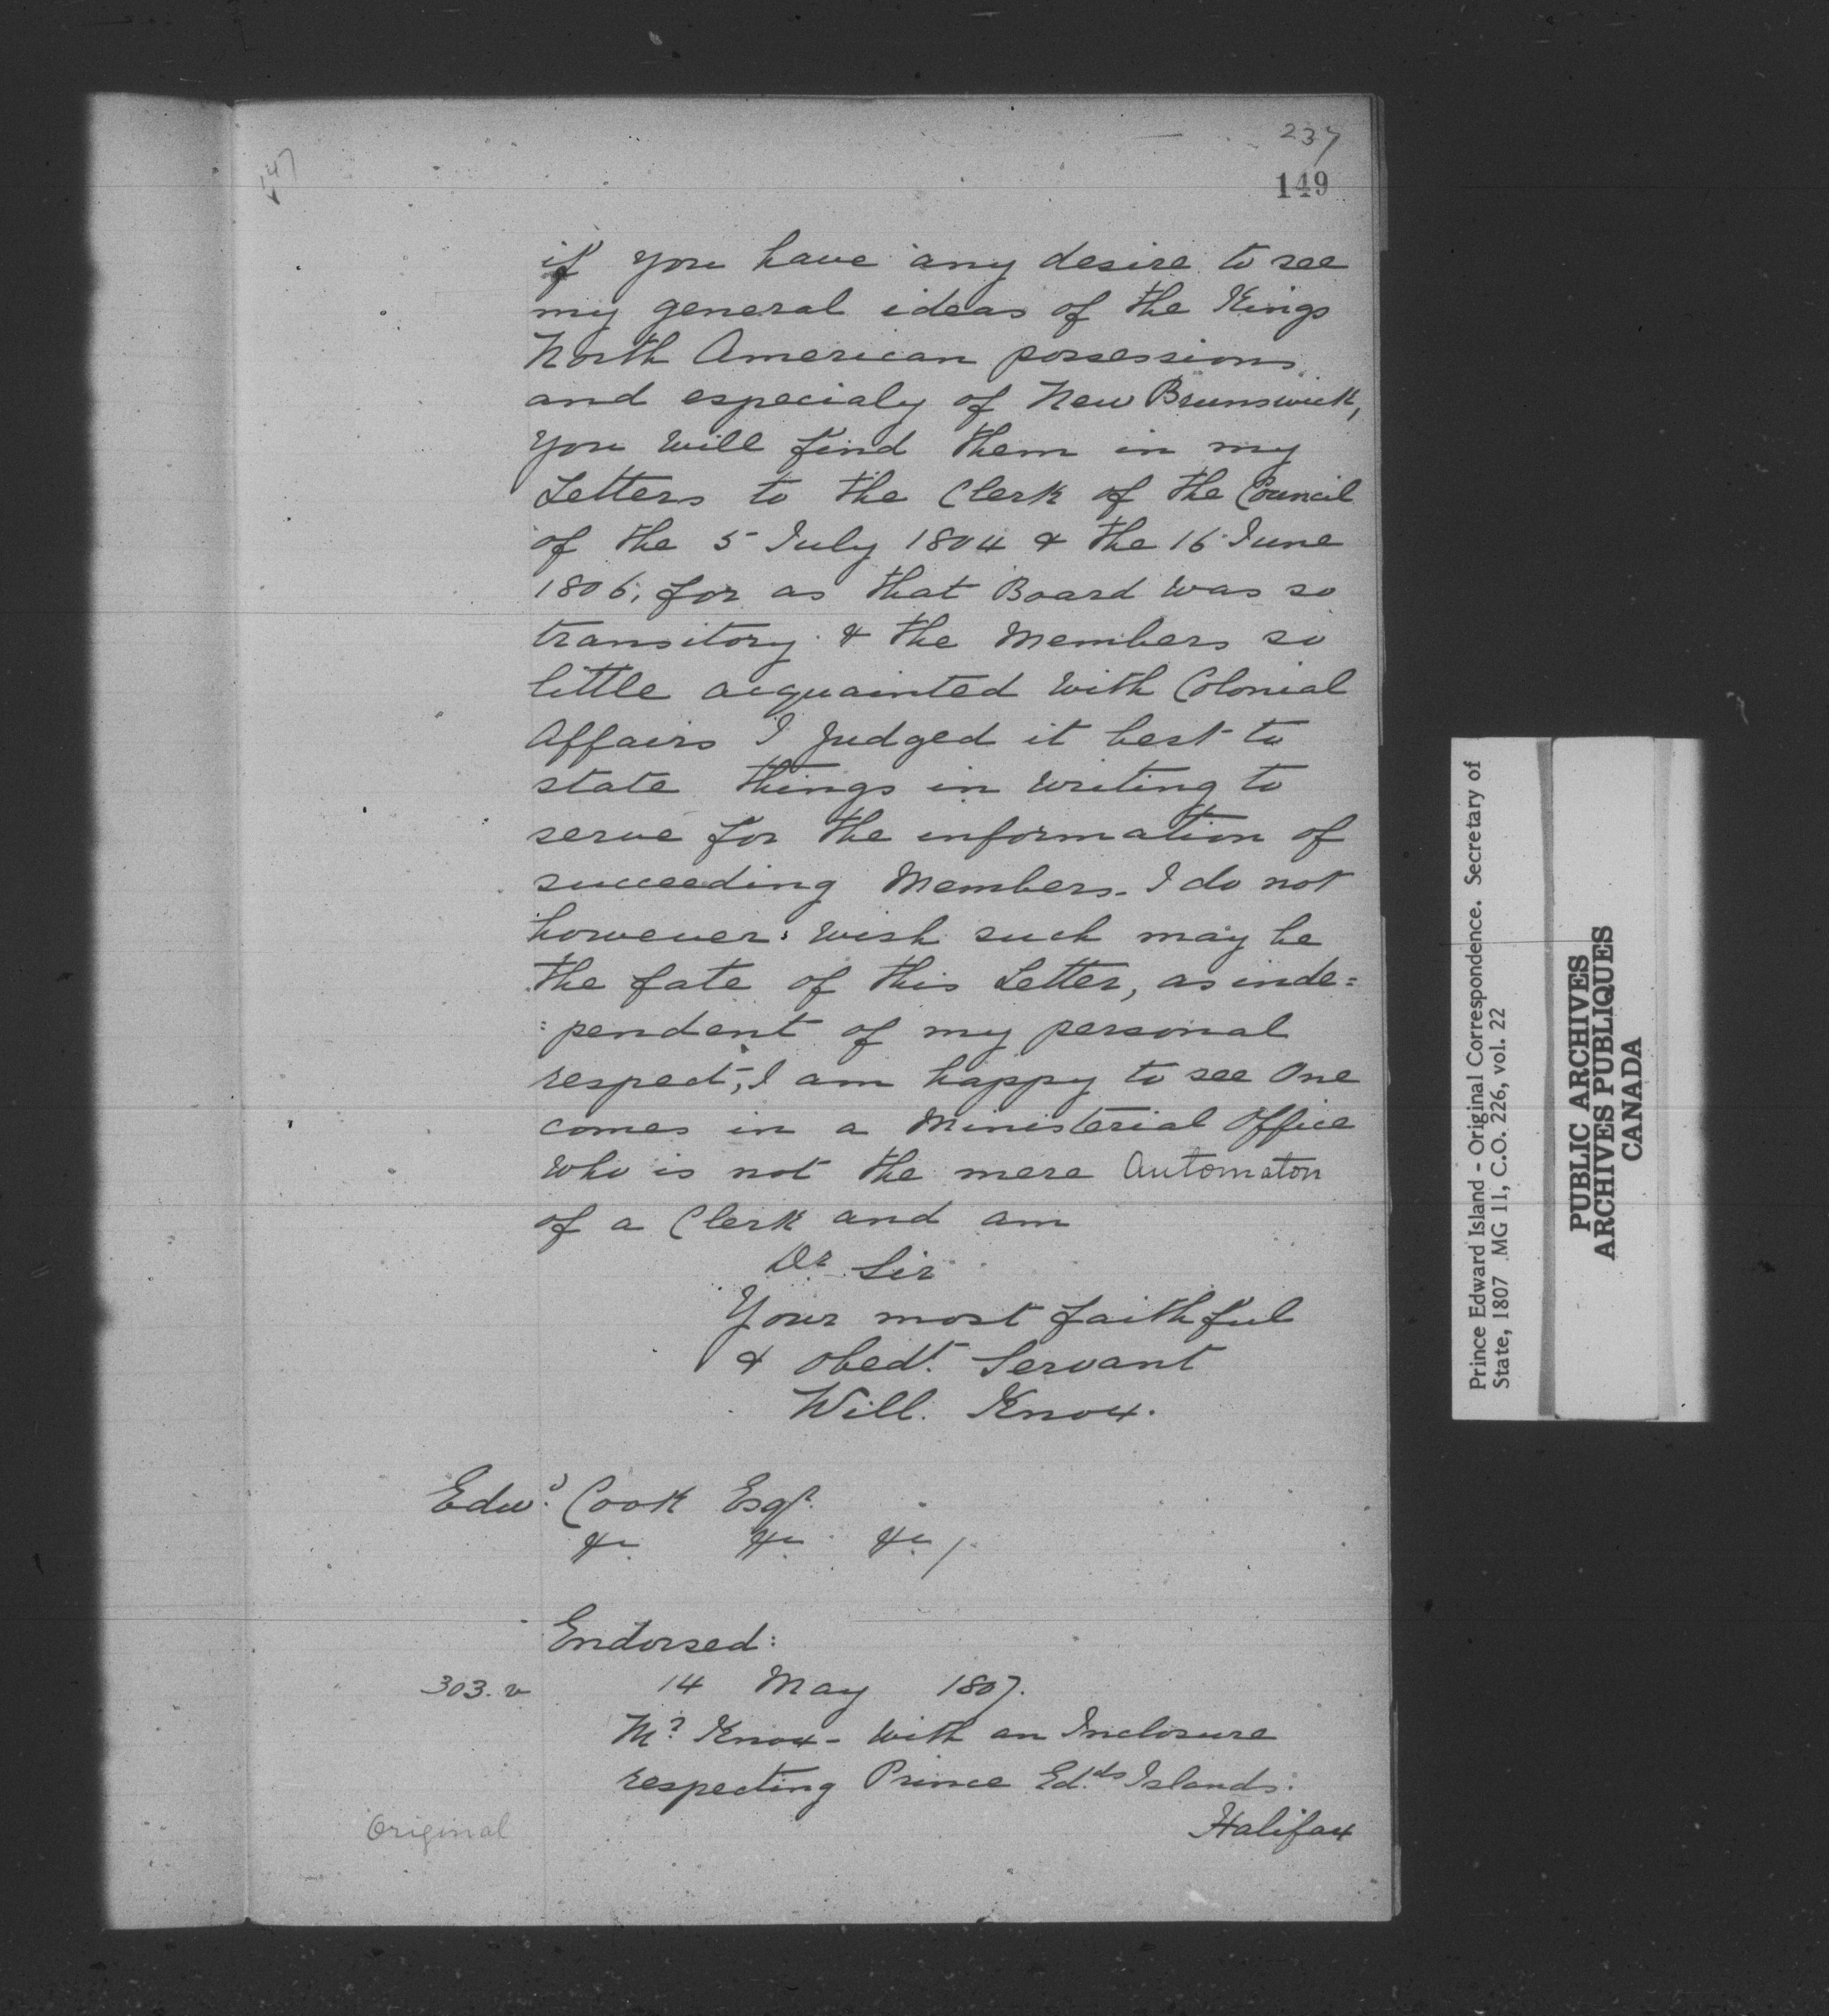 237
149
147
if you have any desire to see
my general ideas of the Kings
North American possessions
and especialy of New Brunswick,
you will find them in my
Letters to the Clerk of the Council
of the 5 July 1804 & the 16 June
1806, for as that Board was so
transitory & the Members so
little acquainted with Colonial
Affairs I judged it best to
state things in writing to
serve for the information of
succeeding Members. I do not
however wish such may be
the fate of this Letter, as inde=
=pendent of my personal
respect, I am happy to see One
comes in a Ministerial Office
who is not the mere Automaton
of a Clerk and am
Dr Sir
Your most faithful
& obedt. Servant
Will. Knox.
Edwd. Cook Esqr.
&c &c &c /
Endorsed:
303. v 14 May 1807.
Mr Knox - with an Inclosure
respecting Prince Ed.ds Islands.
Original Halifax
Prince Edward Island - Original Correspondence. Secretary of
State, 1807 MG 11, C.O. 226, vol. 22
PUBLIC ARCHIVES
ARCHIVES PUBLIQUES
CANADA